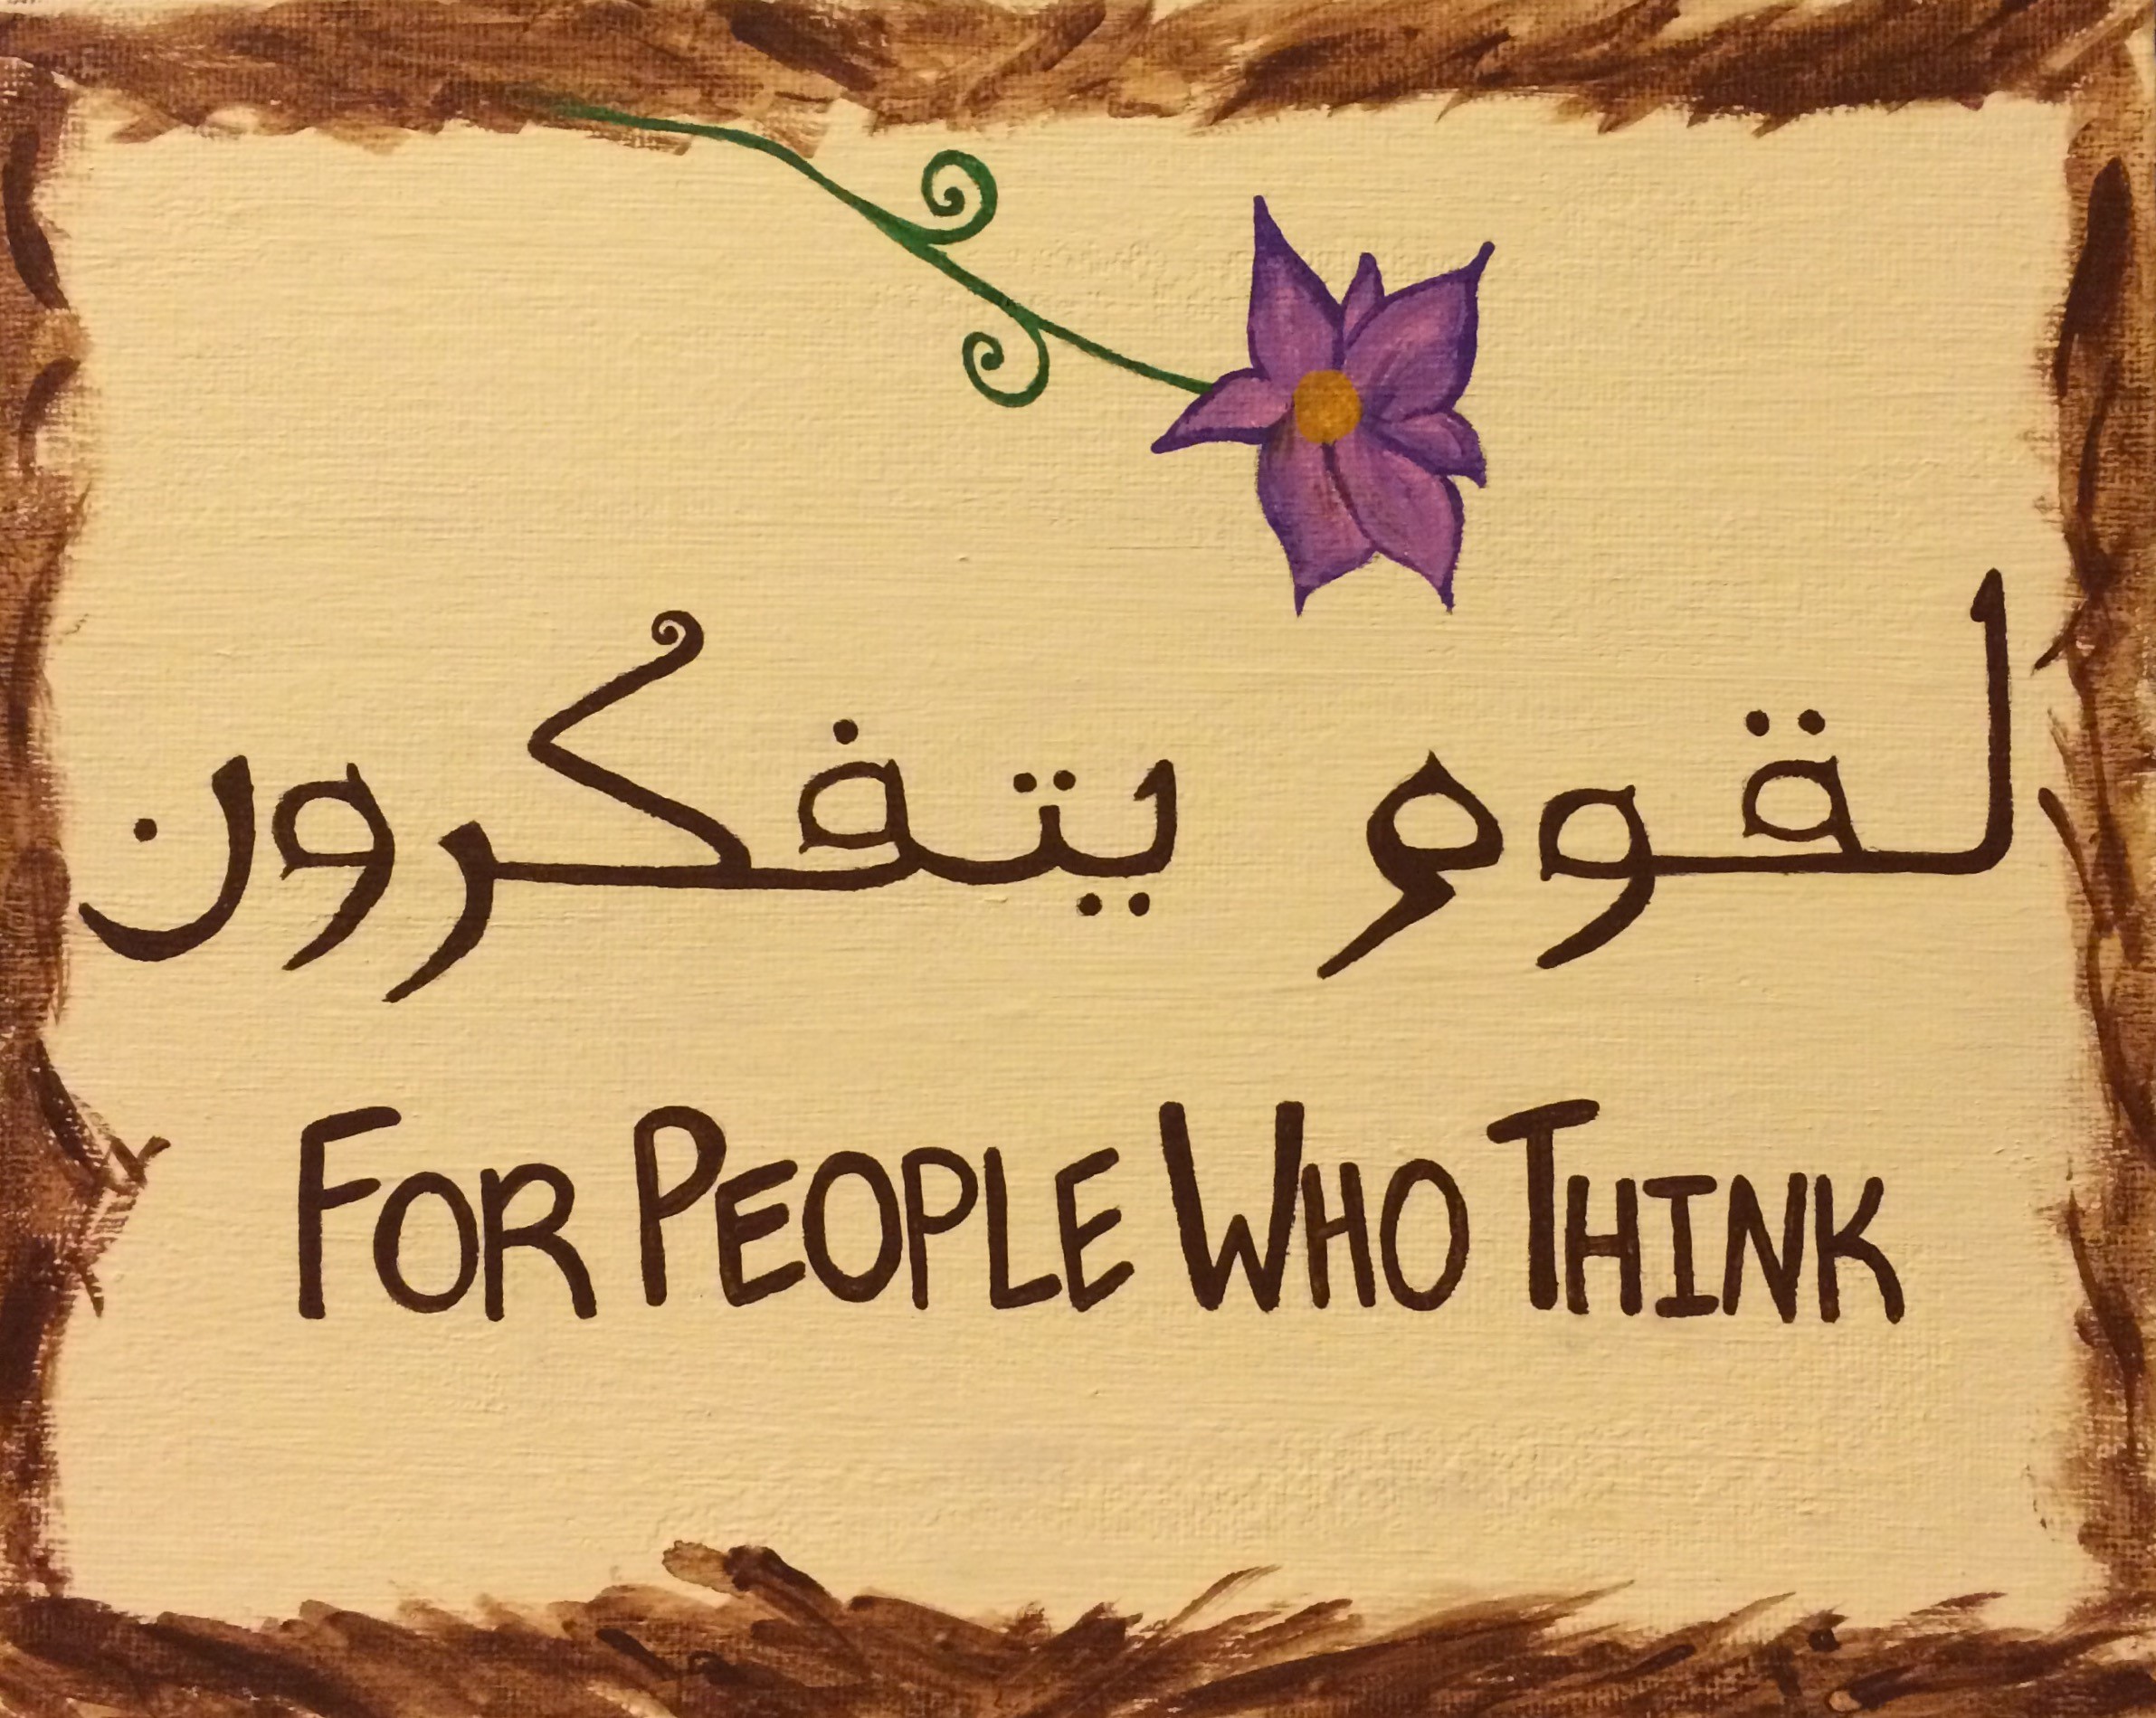 لقوم يتفكرون
FOR PEOPLE WHO THINK